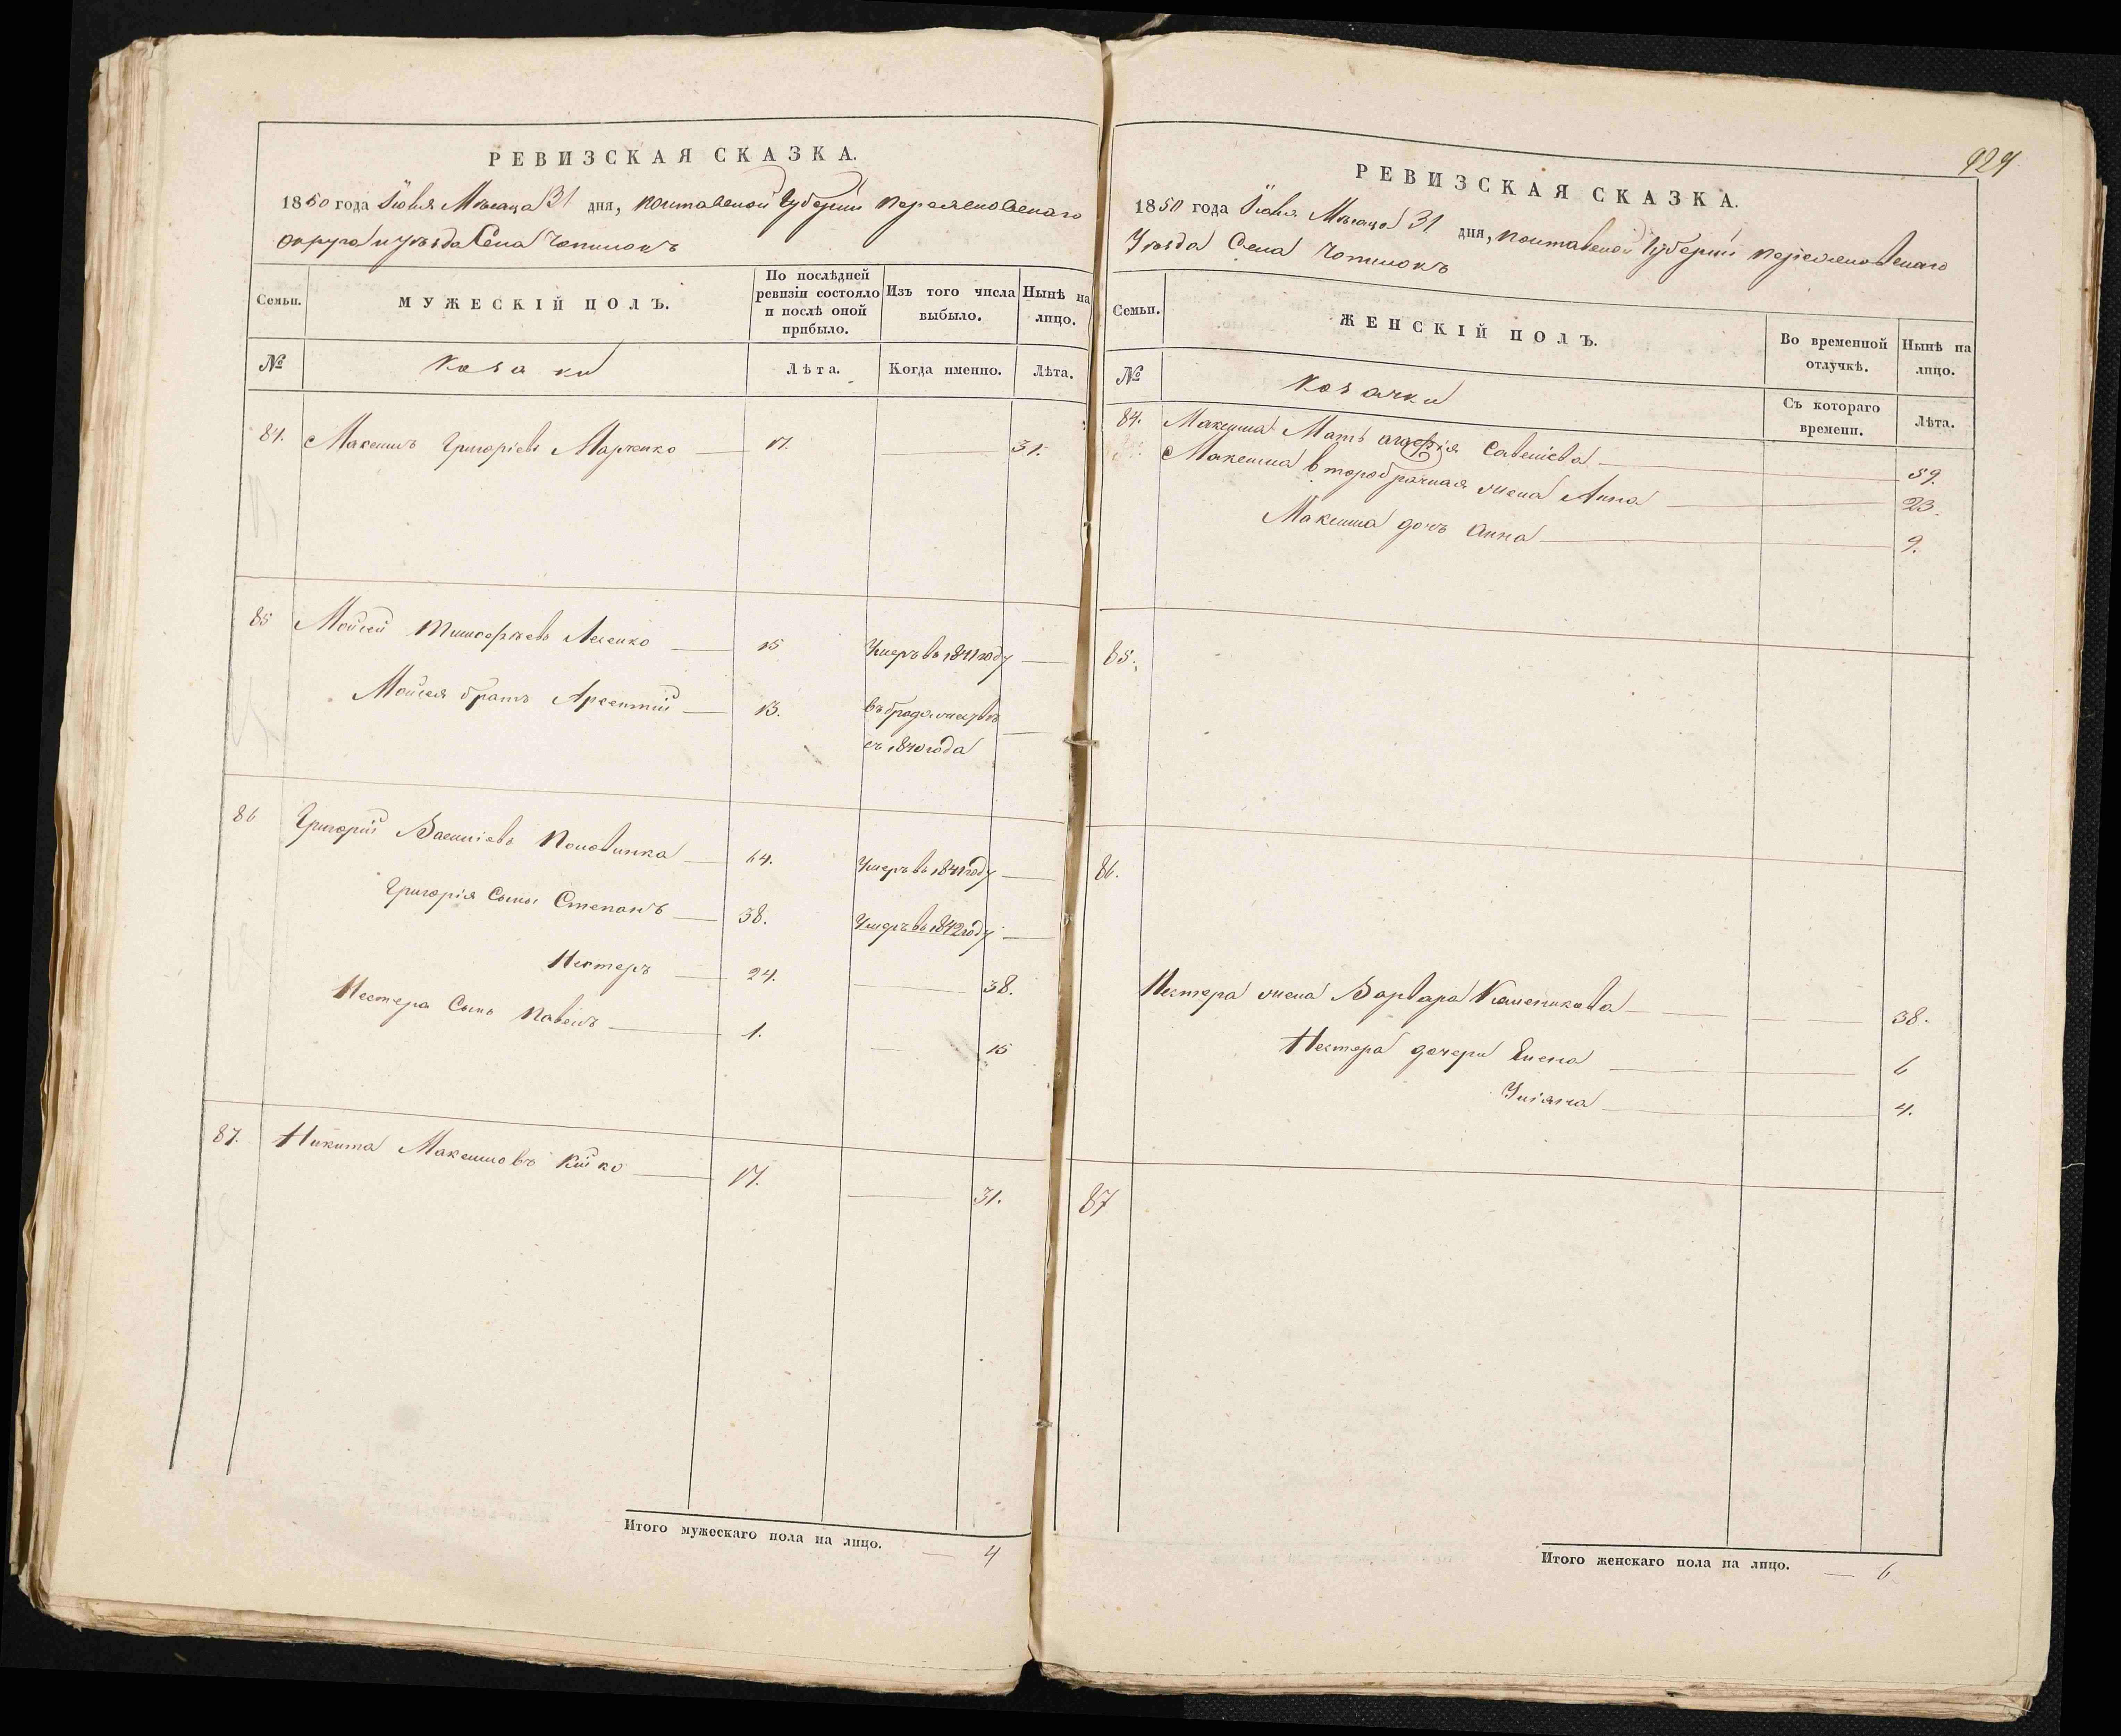 РЕВИЗСКАЯ СКАЗКА.
1850 года Іюля Мѣсяца 31 дня, Полтавской Губерніи Переяславскаго
округа и уѣзда Села Чопилокъ
Семьи.
МУЖЕСКІЙ ПОЛЪ.
По послѣдней
ревизіи состояло
и послѣ оной
прибыло.
Изъ того числа
выбыло.
Нынѣ на
лицо.
№
Козаки
Лѣта.
Когда именно.
Лѣта.
84. Максимъ Григоріевъ Марченко — 17. — 31.
85 Мойсей Тимофѣевъ Лесенко — 15 Умеръ въ 1841 году —
Мойсея братъ Арсентій — 13. въ бродяжествѣ —
съ 1840 года
86 Григорій Василіевъ Половинка — 64. Умеръ въ 1841 году —
Григорія Сыны Степанъ — 38. Умеръ въ 1842 году —
Нестеръ — 24. — 38.
Нестера Сынъ Павелъ — 1. — 15
87. Никита Максимовъ Кійко — 17. — 31.
Итого мужескаго пола на лицо. — 4
924
РЕВИЗСКАЯ СКАЗКА.
1850 года Іюля Мѣсяца 31 дня, Полтавской Губерніи Переяславскаго
Уѣзда Села Чопилокъ
Семьи.
ЖЕНСКІЙ ПОЛЪ.
Во временной
отлучкѣ.
Нынѣ на
лицо.
№
Козачки
Съ котораго
времени.
Лѣта.
84. Максима Мать Савеліева — 59.
Максима второбрачная жена Анна — 23.
Максима дочь Анна — 9.
85.
86.
Нестера жена Варвара — 38.
Нестера дочери Елена — 6
Уліяна — 4.
87
Итого женскаго пола на лицо. — 6